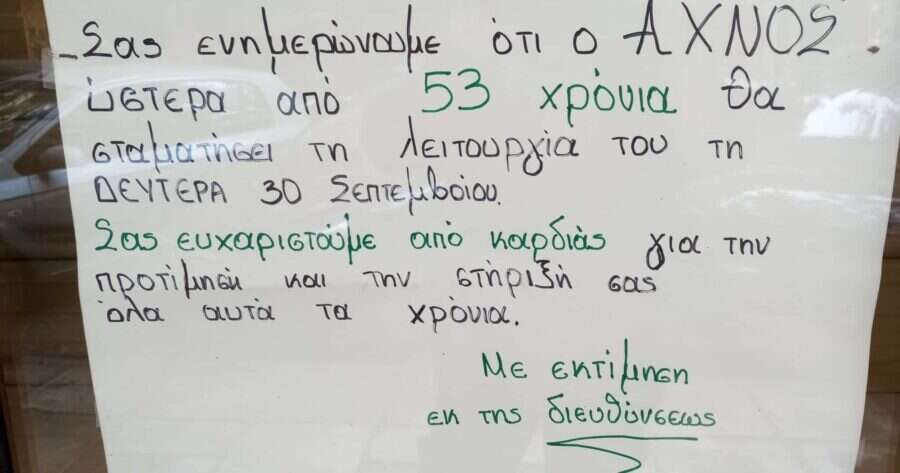 _Σας ενημερώνουμε ότι ο ΑΧΝΟΣ.
ύστερα από 53 χρόνια θα
σταματήσει τη λειτουργία του τη
ΔΕΥΤΕΡΑ 30 Σεπτεμβρίου.
Σας ευχαριστούμε από καρδιάς για την
προτίμηση και την στήριξή σας
όλα αυτά τα χρόνια.
Με εκτίμηση
εκ της διευθύνσεως